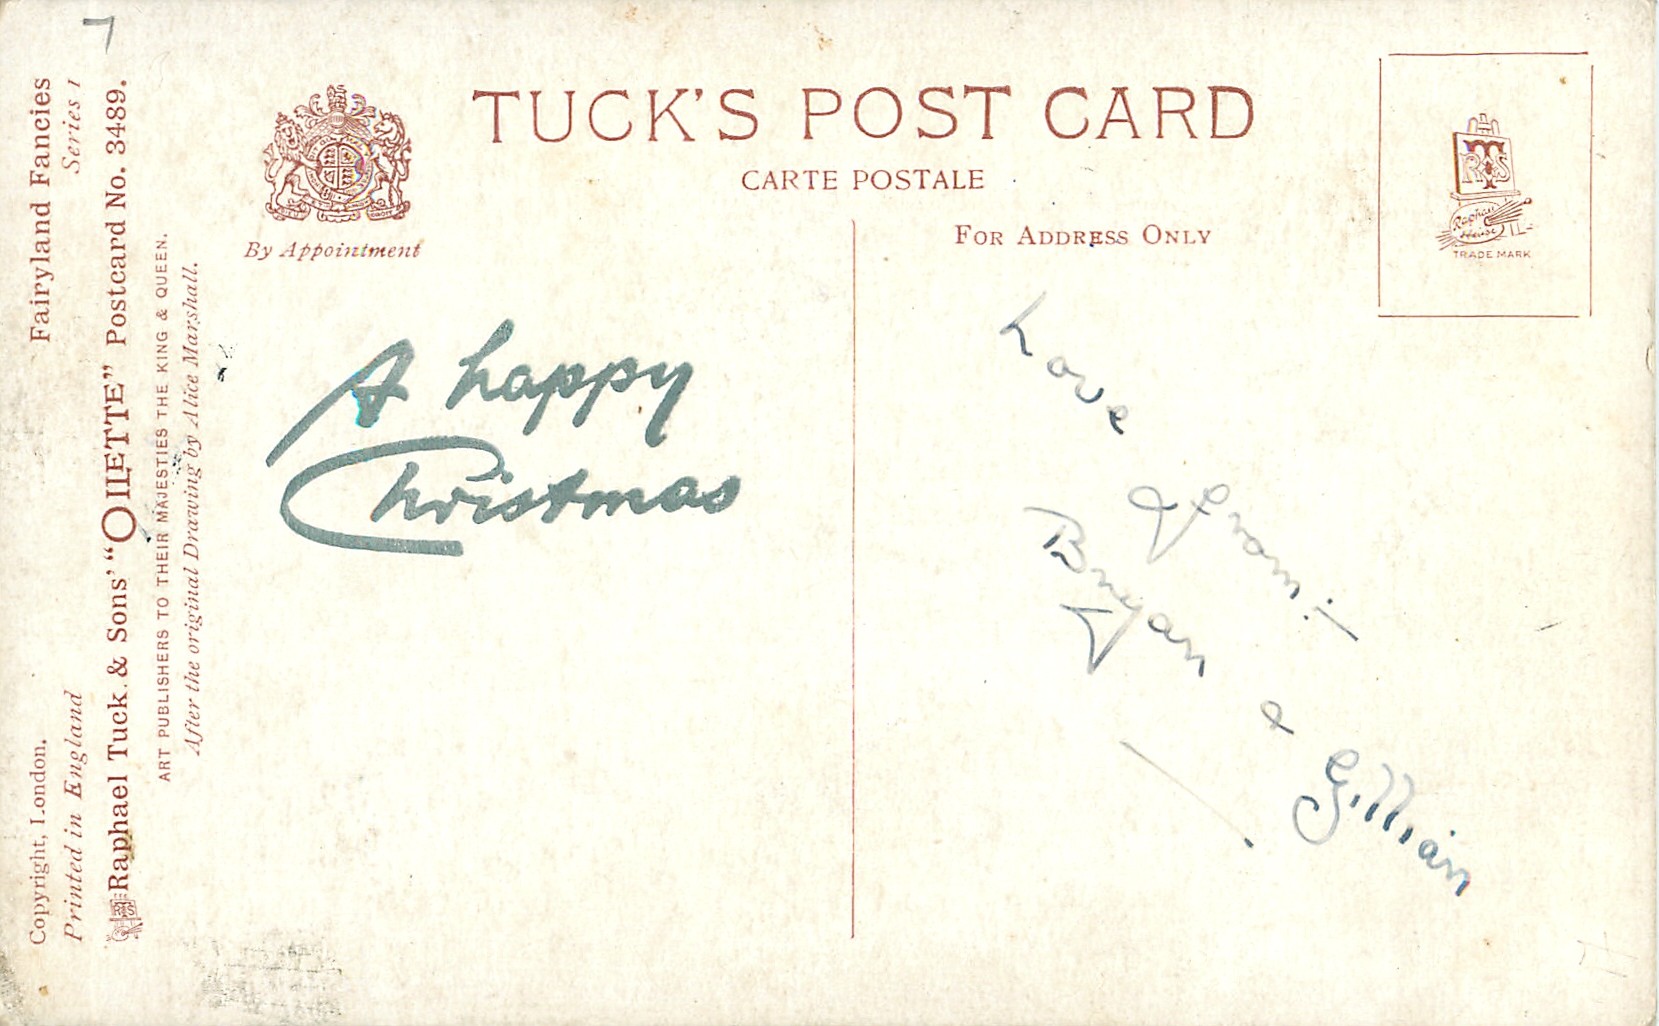 7
Fairyland Fancies
Series I
Copyright, London.
Printed in England
Raphael Tuck & Sons' "OILETTE" Postcard No. 3489.
ART PUBLISHERS TO THEIR MAJESTIES THE KING & QUEEN.
After the original Drawing by Alice Marshall.
By Appointment
TUCK'S POST CARD
CARTE POSTALE
FOR ADDRESS ONLY
RTS
Raphael House
TRADE MARK
A happy
Christmas
Love
from :-
Bryan & Gillian